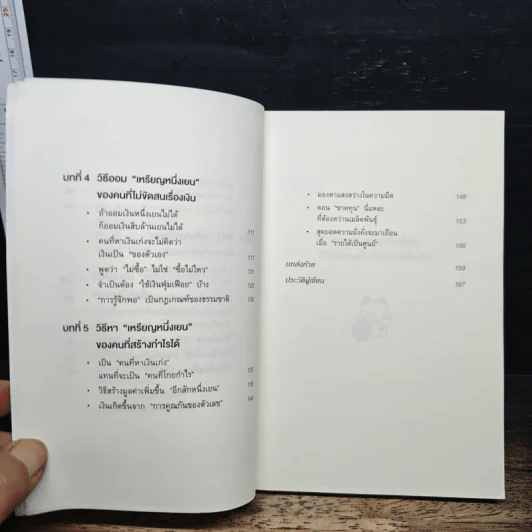 บทที่ 4 วิธีออม "เหรียญหนึ่งเยน"
ของคนที่ไม่ขัดสนเรื่องเงิน
• ถ้าออมเงินหนึ่งเยนไม่ได้
ก็ออมเงินสิบล้านเยนไม่ได้ 111
• คนที่หาเงินเก่งจะไม่คิดว่า
เงินเป็น "ของตัวเอง" 117
• พูดว่า "ไม่ซื้อ" ไม่ใช่ "ซื้อไม่ไหว" 121
• จำเป็นต้อง "ใช้เงินฟุ่มเฟือย" บ้าง 125
• "การรู้จักพอ" เป็นกฎเกณฑ์ของธรรมชาติ 132
บทที่ 5 วิธีหา "เหรียญหนึ่งเยน"
ของคนที่สร้างกำไรได้
• เป็น "คนที่หาเงินเก่ง"
แทนที่จะเป็น "คนที่โกยกำไร" 135
• วิธีสร้างมูลค่าเพิ่มขึ้น "อีกสักหนึ่งเยน" 139
• เงินเกิดขึ้นจาก "การคูณกันของตัวเลข" 144
• มองหาแสงสว่างในความมืด 149
• ตอน "ขาดทุน" นี่แหละ
ที่ต้องหว่านเมล็ดพันธุ์ 153
• สุดยอดความมั่งคั่งจะมาเยือน
เมื่อ "รายได้เป็นศูนย์" 156
บทส่งท้าย 159
ประวัติผู้เขียน 167